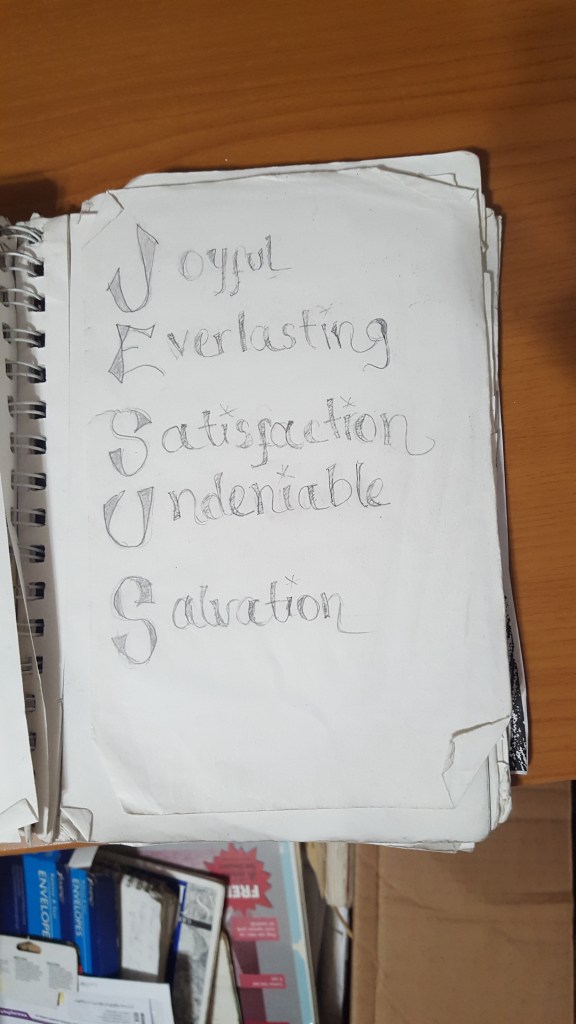 Joyful
Everlasting
Satisfaction
Undeniable
Salvation
ENVELOPES
ENVELOPE
FREE